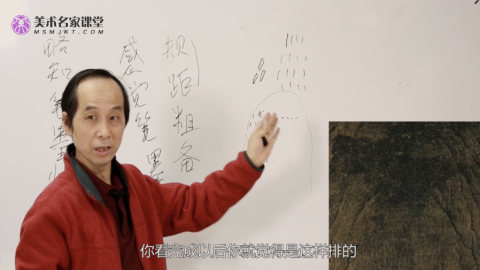 美术名家课堂
MSMJKT.COM
规距粗备
感觉笔墨
略知笔墨
你看完成以后你就觉得是这样排的